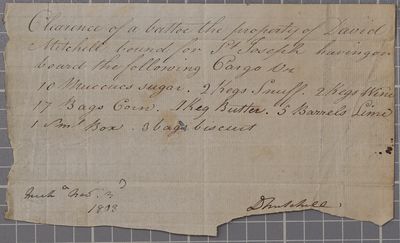 Clearence of a battoe the property of David
Mitchell bound for St. Joseph having on
board the following Cargo Viz
10 Mucocks sugar. 2 Kegs Snuff. 2 Kegs Wine
17 Bags Corn. 1 Keg Butter. 5 Barrels Lime
1 Sml Box. 3 bags biscuit
Mich. Nov. 3d
1803
D Mitchell